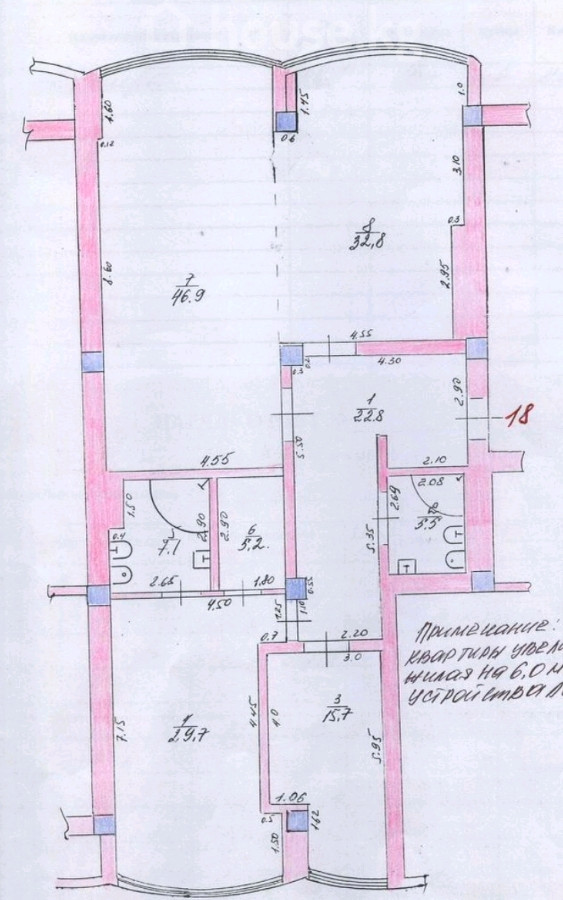 house.kg
4.60
1.45
1.0
0.12
0.6
3.10
8
32,8
0.3
7
46.9
8.60
2.95
4.55
4.30
1
22.8
2.90
18
5.50
4.55
2.10
2.08
1.50
2.90
2.90
6
5.2
2.69
5.35
5.5
7.1
0.4
2.65
1.80
4.50
0.55
1.25
1.10
0.7
2.20
3.0
Примечание:
квартиры увел
жилая на 6,0 м
устройства л
3
15,7
4.45
4.0
29,7
7.15
5.95
1.06
0.5
1.62
1.50